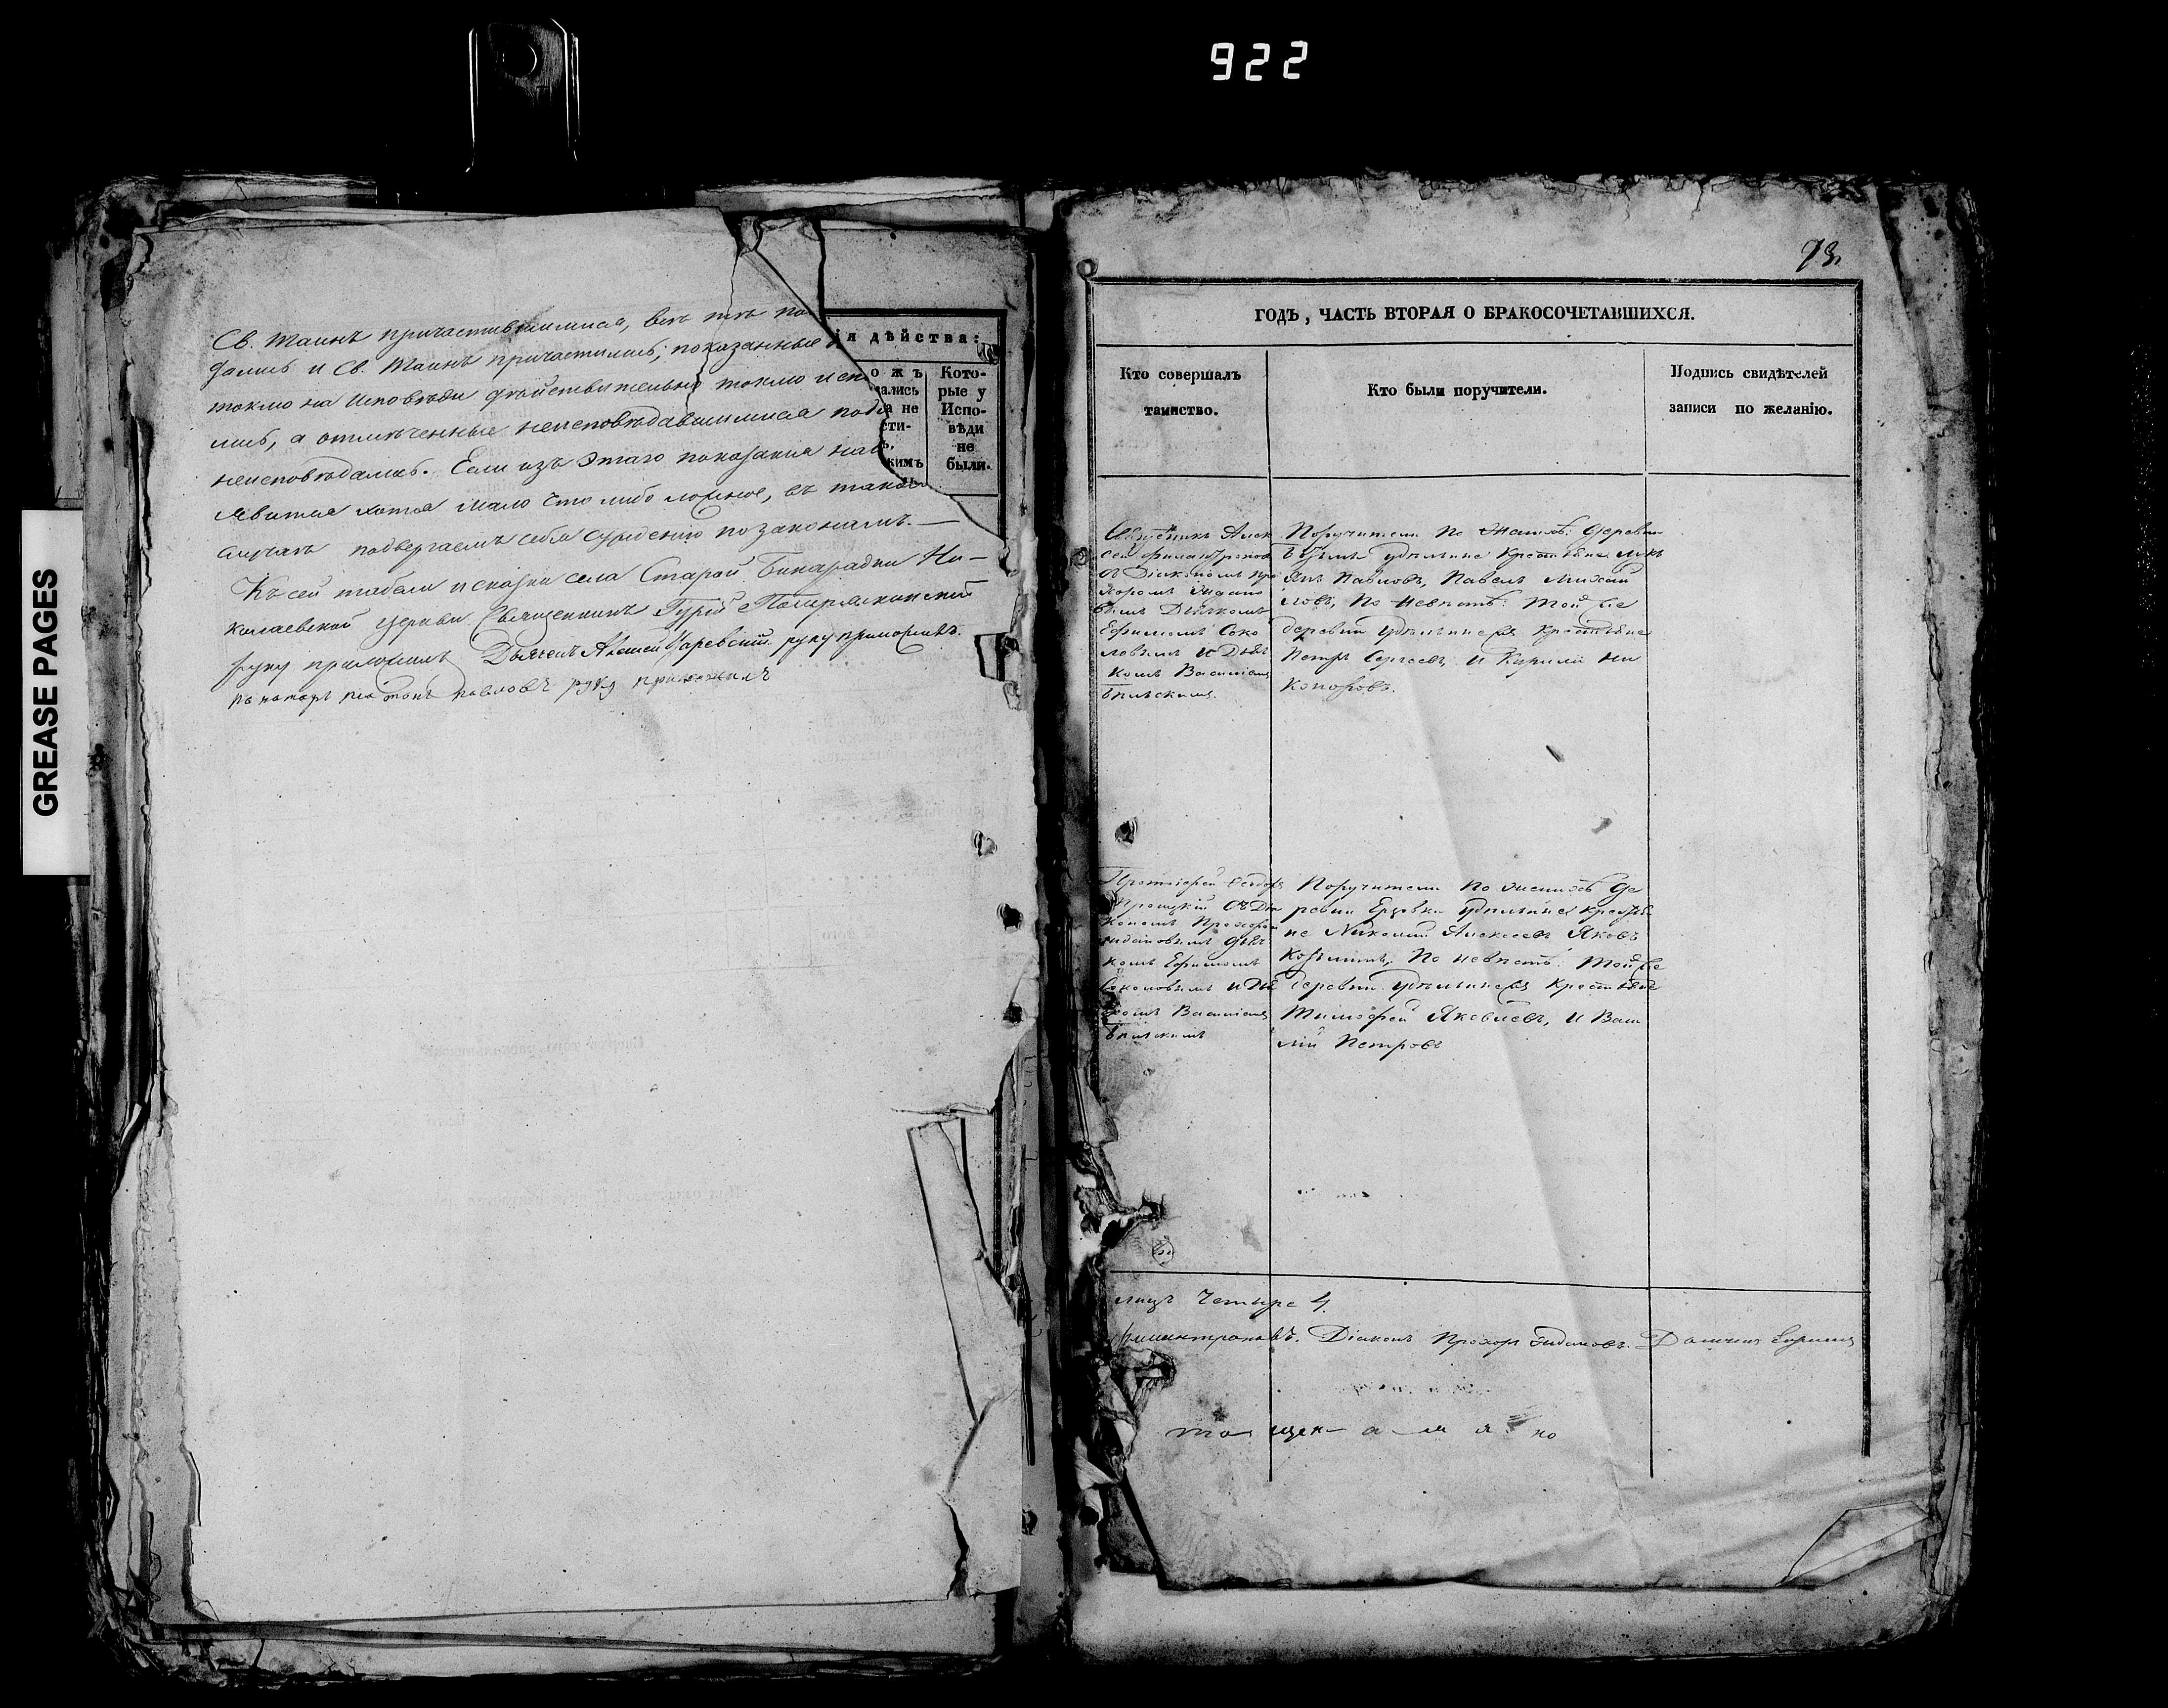 922
GREASE PAGES
Св. Таинъ причастившимися, всѣ тѣ
дались и Св. Таинъ причастились; показанные
токмо на исповѣди дѣйствительно токмо
лись, а отмѣченные неисповѣдавшимися
неисповѣдались. Если изъ этаго показания
явится хотя мало что либо ложное, въ
случаѣ подвергаемъ себя суждению по законамъ.—
Къ сей табели и сказки села Старой Бинарадки Ни-
колаевской церкви Священникъ Гурий
руку приложилъ Дьячекъ Алексей Царевский руку приложилъ.
пономарь Платонъ Павловъ руку приложилъ
ія дѣйства:
о ж ъ
ались
а не
сти-
ь,
кимъ
Кото-
рые у
Испо-
вѣди
не
были.
73
ГОДЪ, ЧАСТЬ ВТОРАЯ О БРАКОСОЧЕТАВШИХСЯ.
Кто совершалъ
таинство.
Кто были поручители.
Подпись свидѣтелей
записи по желанію.
Священникъ Алек
сей Филантропов
съ Діакономъ Про
хоромъ
Дьячкомъ
Ефимомъ Соко
ловымъ и Дьяч
комъ Василіемъ
Поручители по женихѣ: деревни
удѣльные крестьяне Лукъ
янъ Павловъ, Павелъ Михай
ловъ, по невѣстѣ: той же
деревни удѣльные крестьяне
Петръ Сергеевъ и Кирилъ Ни
коноровъ.
Протоіерей Феодоръ
Троицкій съ Діа
кономъ Прохоромъ
дьяч
комъ Ефимомъ
Соколовымъ и Дья
комъ Василіемъ
Поручители по женихѣ де
ревни Ерзовки удѣльные крестья
не Николай Алексеевъ Яковъ
Козьминъ, по невѣстѣ: той же
деревни удѣльные крестьяне
Тимофей Яковлевъ, и Васи
лий Петровъ
лицъ Четыре 4.
Филантроповъ. Діаконъ Прохоръ Дьячекъ Ефимъ